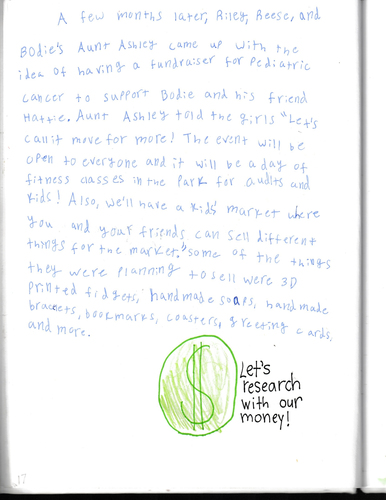 A few months later, Riley, Reese, and
Bodie's Aunt Ashley came up with the
idea of having a fundraiser for Pediatric
cancer to support Bodie and his friend
Hattie. Aunt Ashley told the girls "Let's
call it move for more! The event will be
open to everyone and it will be a day of
fitness classes in the park for audits and
kids! Also, we'll have a kids' market where
you and your friends can sell different
things for the market." some of the things
they were planning to sell were 3D
printed fidgets, handmade soaps, handmade
braclets, bookmarks, coasters, greeting cards,
and more.
$
Let's
research
with our
money!
17